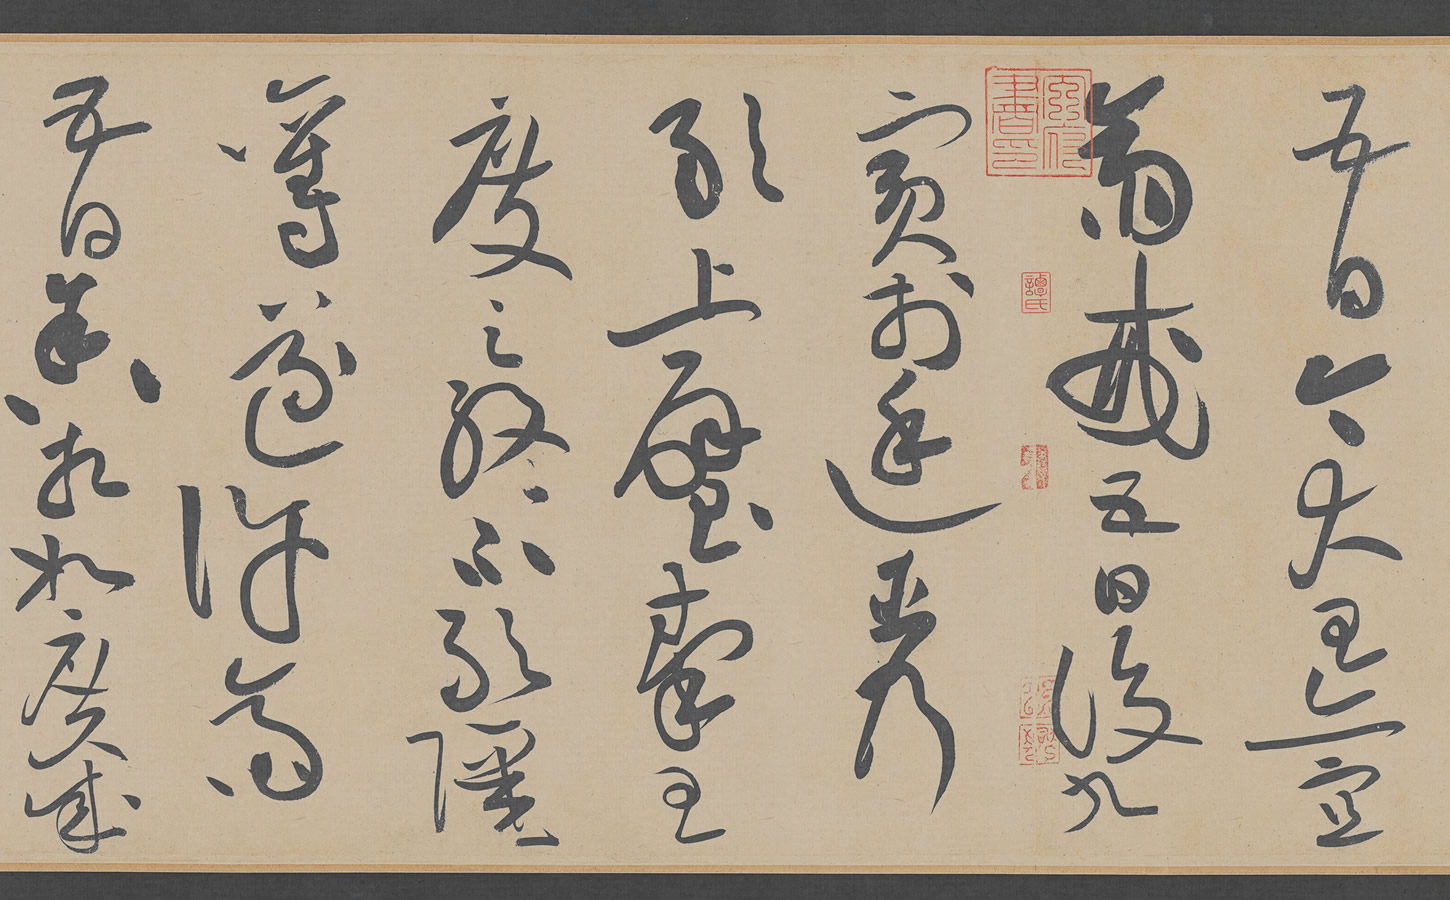 五日今大王亦宜
齋戒五日設九
賓於廷臣乃
敢上璧秦王
度之終不敢彊
奪遂許齋
五日舍相如廣成
內府書印
譚氏